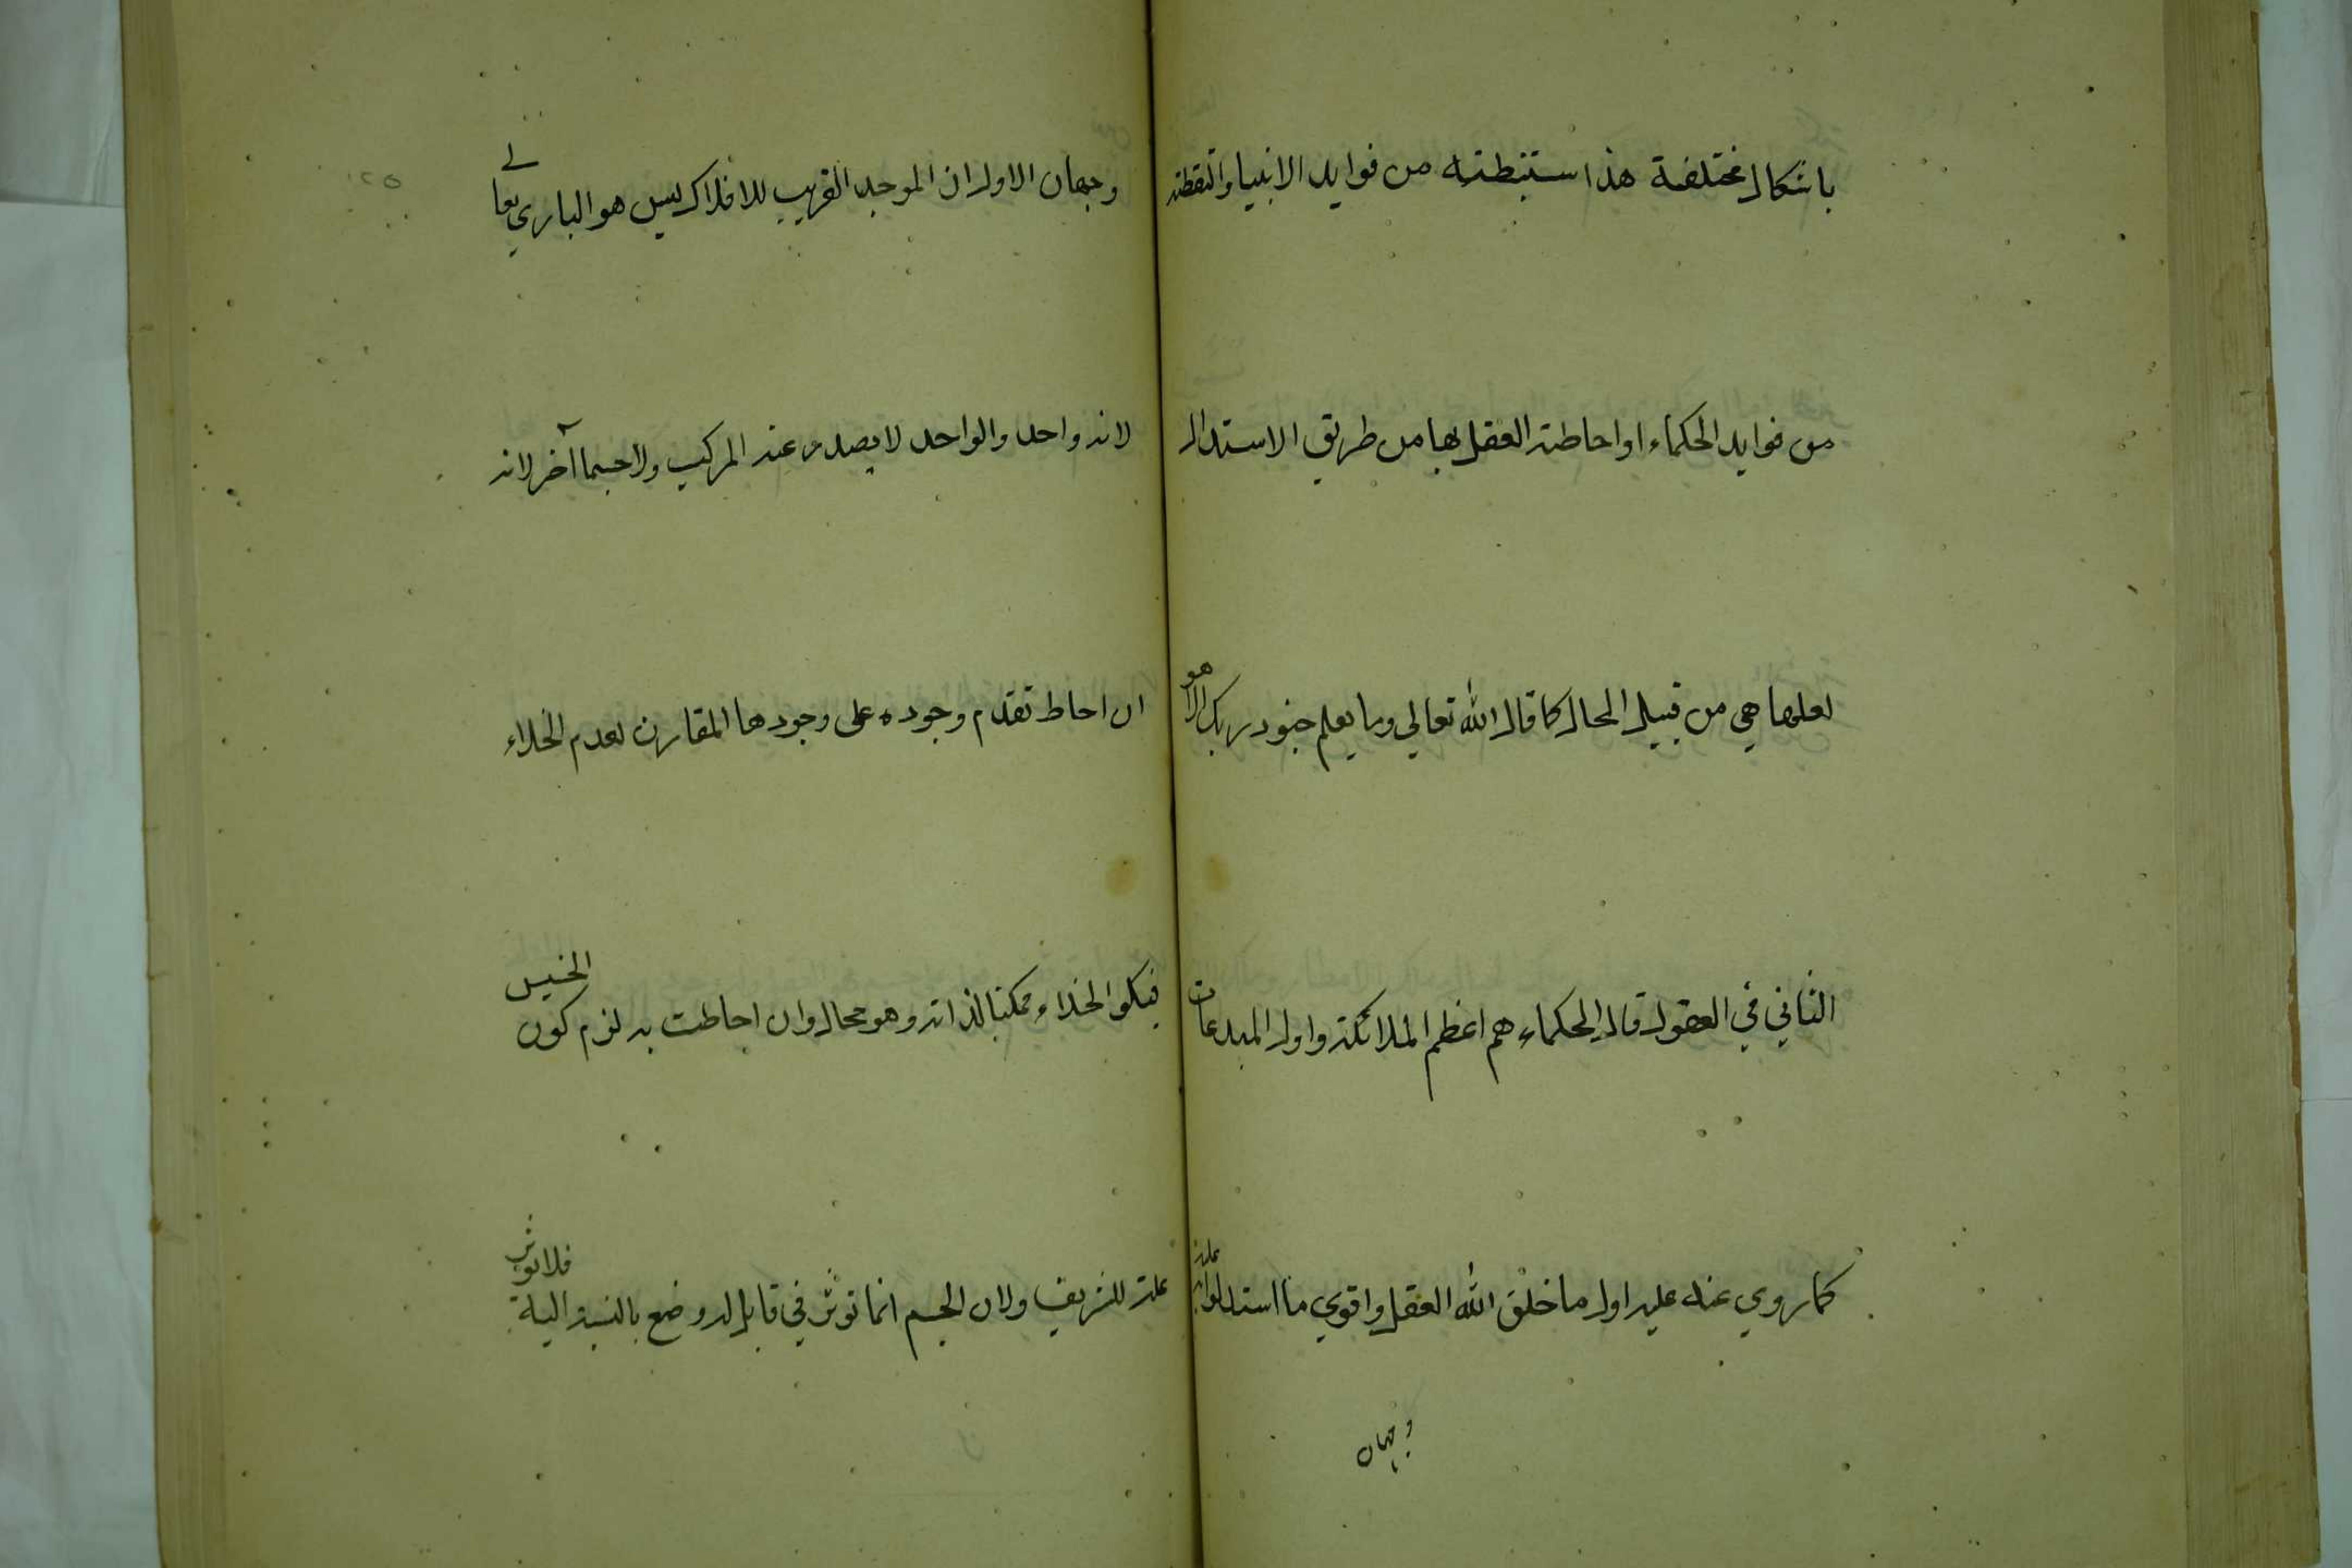 باشكال مختلفة هذا استنبطته من فوايد الانبيا والتقطته
من فوايد الحكماء او احاطة العقل بها من طريق الاستدلال
لعلها هي من قبيل المحال كما قال الله تعالي وما يعلم جنود ربك الا هو
الثاني في العقول قال الحكماء هم اعظم الملائكة واول المبدعات
كما روي عنه عليه اول ما خلق الله العقل واقوي ما استدلوا به عليه
وجهان
وجهان الاول ان الموجد القريب للافلاك ليس هو الباري تعالے
لانه واحد والواحد لا يصدر عنه المركب ولا جسما آخر لانه
ان احاط تقدم وجوده على وجودها المقارن لعدم الخلاء
فيكو الخلاء ممكنا لذاته وهو محال وان احاطت به لزم كون الخسيس
علة للشريف ولان الجسم انما توثر في قابل له وضع بالنسبة اليه فلا توثر